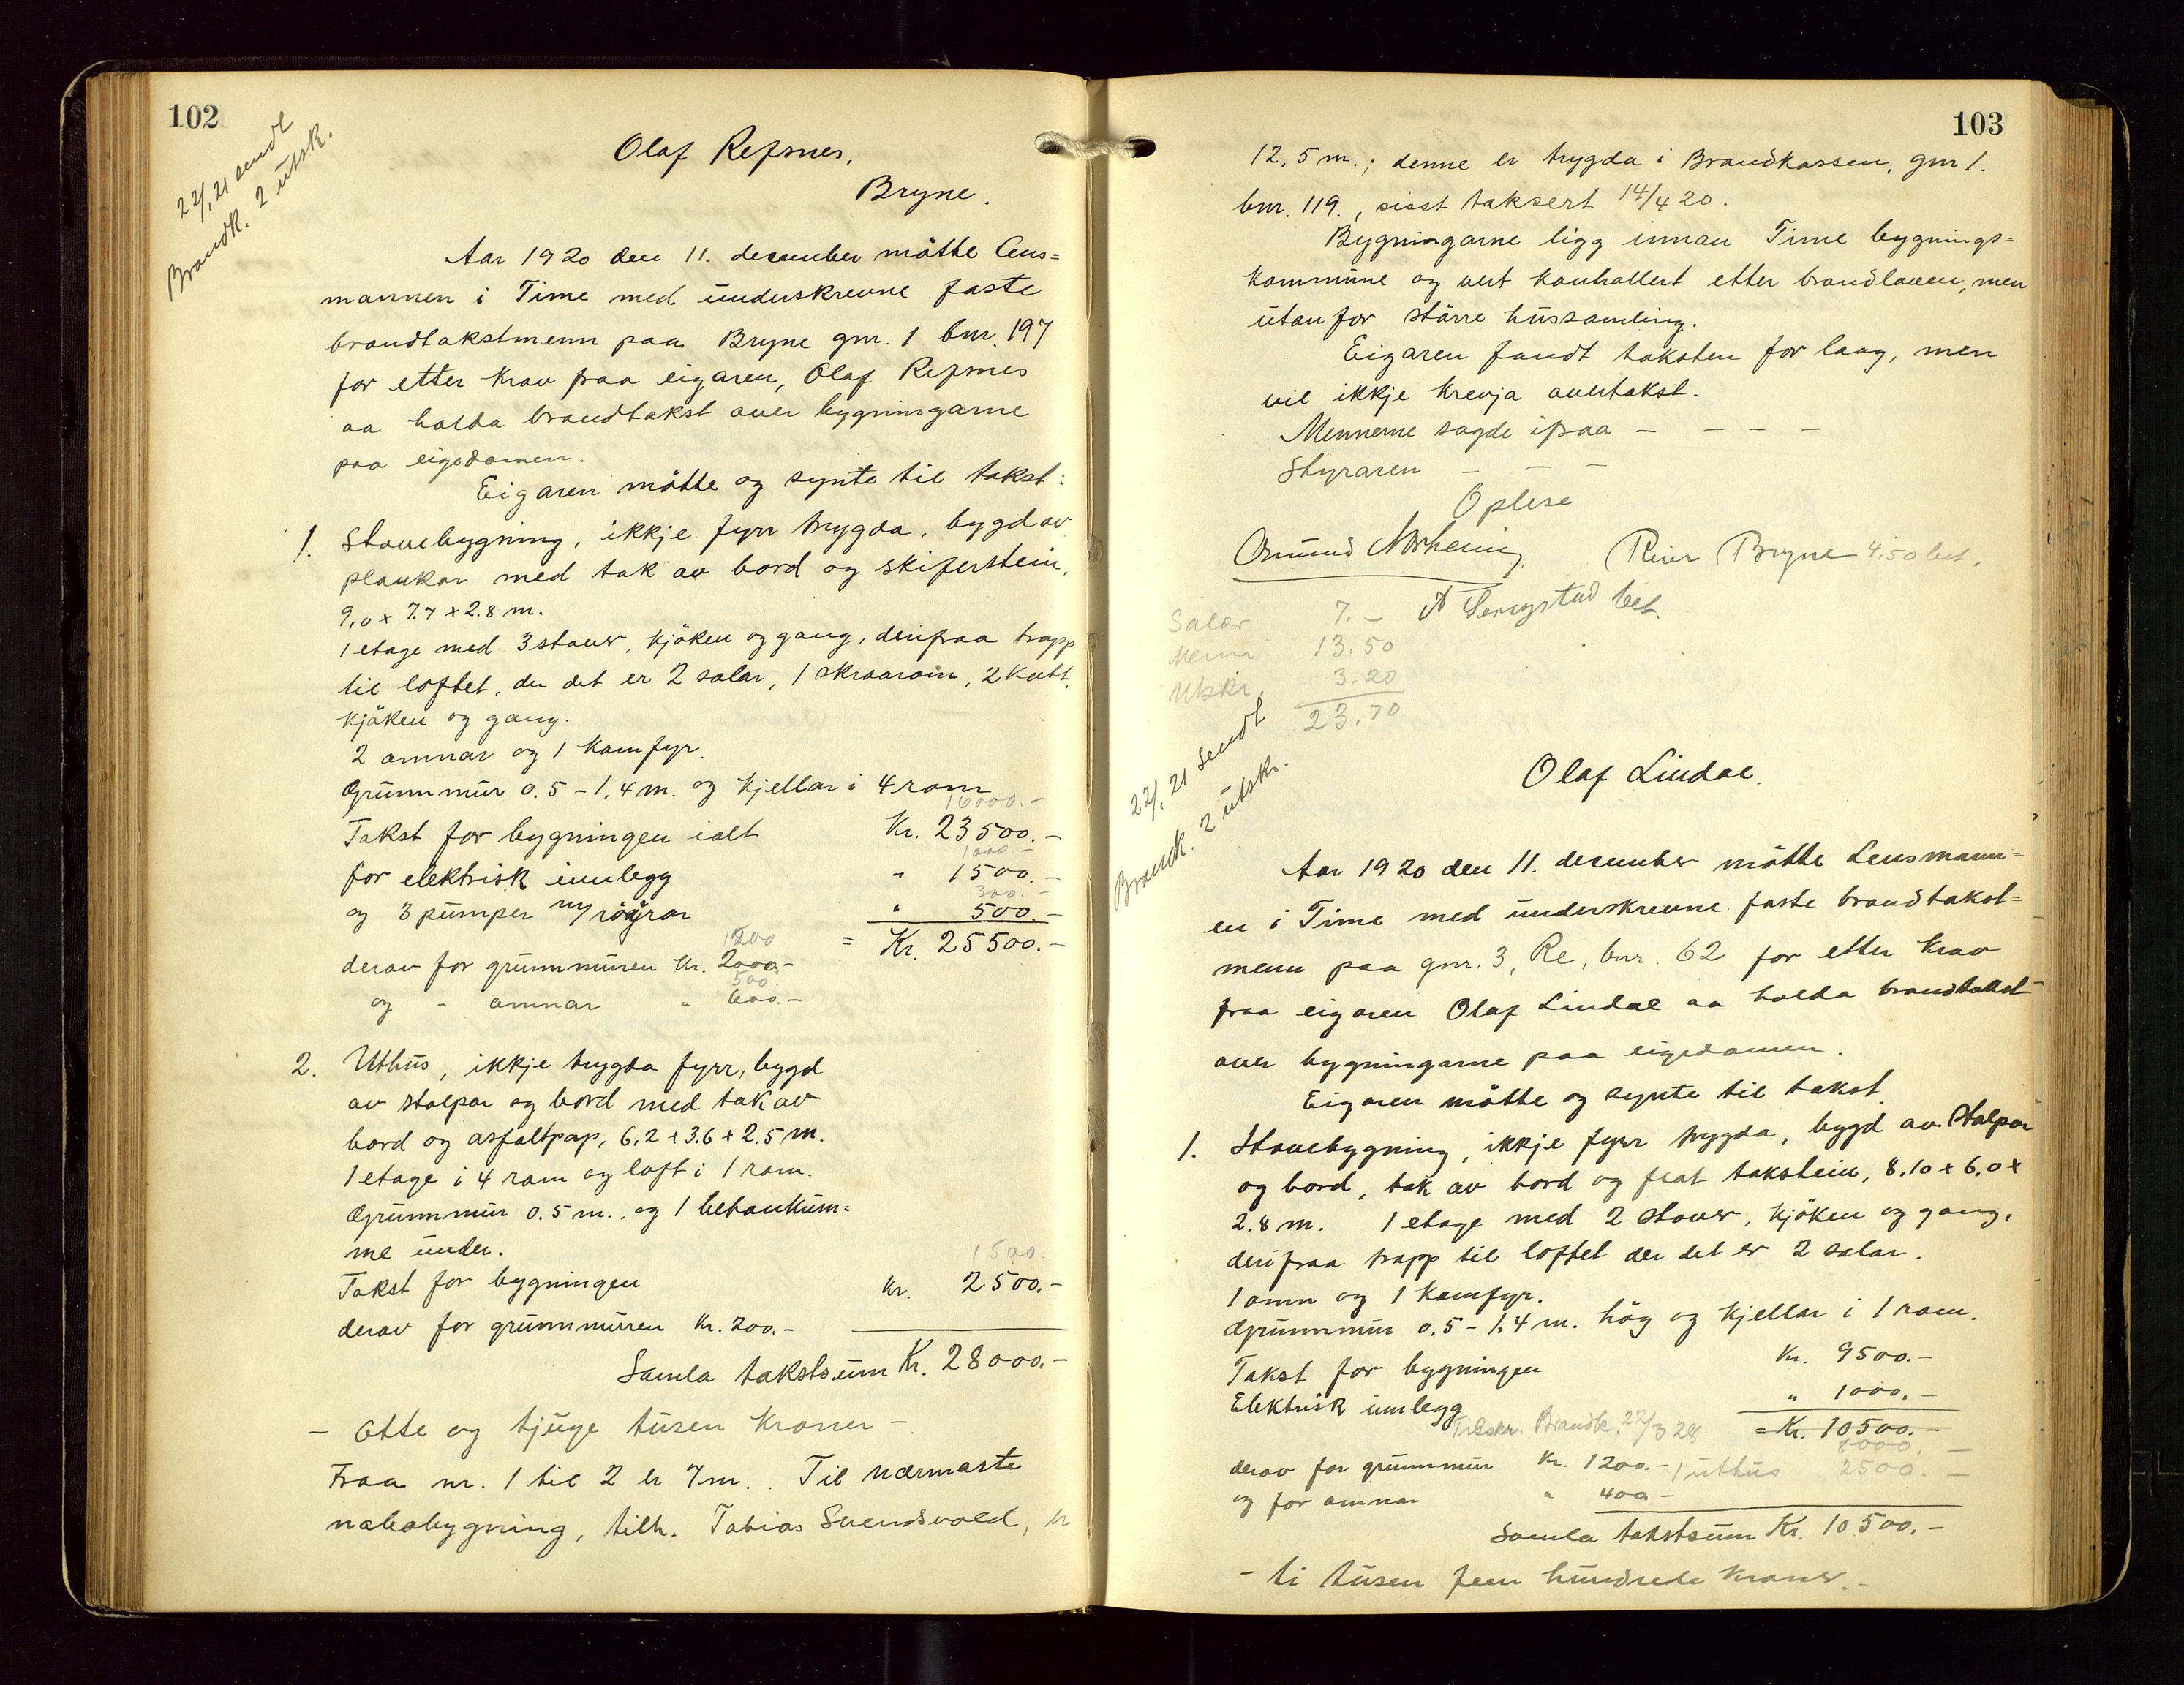 102
22/1 21 sendt
Brandk. 2 utsk.
Olaf Refsnes,
Bryne.
Aar 1920 den 11. december møtte Lens=
mannen i Time med underskrevne faste
brandtakstmenn paa Bryne gnr. 1 bnr. 197
for etter krav fraa eigaren, Olaf Refsnes
aa halda brandtakst over bygningarne
paa eigedomen.
Eigaren møtte og synte til takst:
1. Stovebygning, ikkje fyrr trygda, bygd av
plankar med tak av bord og skiferstein,
9,0 x 7.7 x 2.8 m.
1 etage med 3 stover, kjøken og gang, derifraa trapp
til loftet, der det er 2 salar, 1 skraarom, 2 kott,
kjøken og gang.
2 omnar og 1 komfyr.
Grunnmur 0.5 - 1,4 m. og kjellar i 4 rom
16000.-
Takst for bygningen ialt Kr. 23500.-
1000.-
for elektrisk innlegg " 1500.-
300.-
og 3 pumper m/ røyrar " 500.-
= Kr. 25500.-
1200
derav for grunnmuren Kr. 2000.-
500.
og " omnar " 600.-
2. Uthus, ikkje trygda fyrr, bygd
av stolpar og bord med tak av
bord og asfaltpap, 6,2 x 3.6 x 2,5 m.
1 etage i 4 rom og loft i 1 rom.
Grunnmur 0.5 m., og 1 betonkum=
me under.
1500.
Takst for bygningen Kr. 2500.-
derav for grunnmuren Kr. 200.-
Samla takstsum Kr. 28000.-
- Otte og tjuge tusen kroner -
Fraa nr. 1 til 2 er 7 m.. Til nærmaste
nabobygning, tilh. Tobias Svendsvold, er
103
12,5 m.; denne er trygda i Brandkassen, gnr 1.
bnr. 119., sisst taksert 14/4 20.
Bygningarne ligg innan Time bygnings=
kommune og vert kontrollert etter brandloven, men
utanfor større hussamling.
Eigaren fandt taksten for laag, men
vil ikkje krevja overtakst.
Mennerne sagde ifraa - - - -
Styraren - - -
Oplese
Osmund Norheim Reier Bryne 4,50 bet.
Salær 7.-
Menn 13.50
Utskr. 3.20
23.70
22/1 21 sendt
Brandk. 2 utskr.
Olaf Lindal.
Aar 1920 den 11. december møtte Lensmann=
en i Time med underskrevne faste brandtakst=
menn paa gnr. 3, Re, bnr. 62 for etter krav
fraa eigaren Olaf Lindal aa halda brandtakst
over bygningarne paa eigedomen.
Eigaren møtte og synte til takst.
1. Stovebygning, ikkje fyrr trygda, bygd av stolpar
og bord, tak av bord og flat takstein, 8.10 x 6,0 x
2.8 m. 1 etage med 2 stover, kjøken og gang,
derifraa trapp til loftet der det er 2 salar.
1 omn og 1 komfyr.
Grunnmur 0,5 - 1,4 m. høg og kjellar i 1 rom.
Takst for bygningen Kr. 9500.-
Elektrisk innlegg " 1000.-
Tilskr. Brandk. 22/3 28 = Kr. 10500.-
8000.-
derav for grunnmur Kr. 1200.- 1 uthus 2500.-
og for omnar " 400-
Samla takstsum Kr. 10500.-
- ti tusen fem hundrede kroner. -